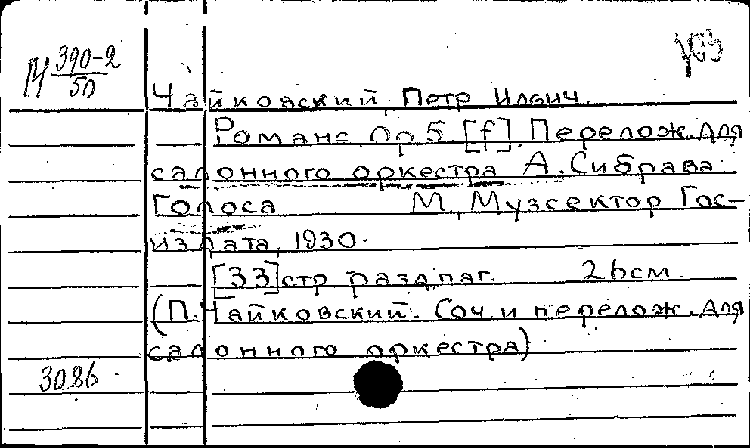 М 390-2/50
Чайковский, Петр Ильич.
Романс Op 5 [f]. Перелож. для
салонного оркестра А. Сибрава.
Голоса М., Музсектор Гос-
издата, 1930.
[33] стр разд паг. 26 см.
(П. Чайковский. Соч. и перелож. для
салонного оркестра)
3086